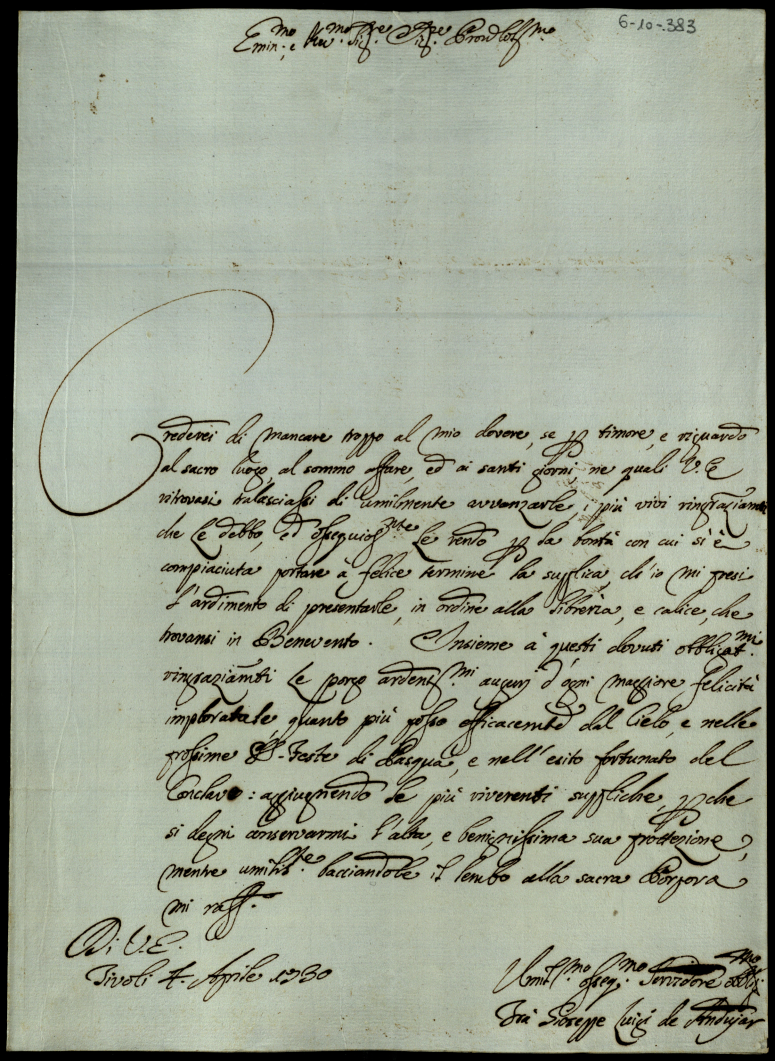 6-10-383
Emin.mo e Rev.mo Sig.re Sig.re Pron Col.mo
Crederei di mancare troppo al mio dovere, se p timore, e riguardo
al sacro luogo, al sommo affare, ed ai santi giorni ne quali V. E.
ritrovasi tralasciassi di umilmente avvanzarle i più vivi ringraziam
che le debbo, ed ossequios.nte le rendo p la bontà con cui si è
compiaciuta portare à felice termine la supplica, ch'io mi presi
l'ardimento di presentarle, in ordine alla libreria, e calice, che
trovansi in Benevento. Insieme à questi dovuti obbligat.mi
ringraziamti le porgo ardentis.mi augurj d'ogni maggiore felicità
imploratale quanto più posso efficacemte dal Cielo, e nelle
prossime SS. Feste di Pasqua, e nell'esito fortunato del
Conclave: aggiugnendo le più riverenti suppliche, p che
si degni conservarmi l'alta, e benignissima sua protezione,
mentre umilis.te bacciandole il lembo alla sacra Porpora
mi rass.o
Di V. E.
Tivoli 4. Aprile 1730
Umil.mo osseq.mo Servidore obb.mo
Frà Giuseppe Luigi de Andujar